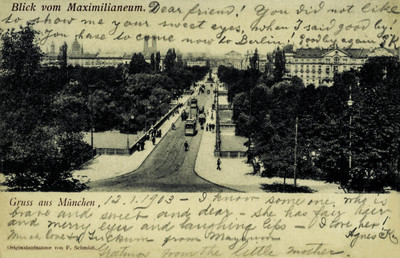 Blick vom Maximilianeum.
Dear friend! You did not like
to show me your sweet eyes, when I said good by!
you have to come now to Berlin! Good by again
Gruss aus München
12.1.1903 – I know some one, who is
brave and sweet and dear – she has fair hair
and merry eyes and laughing lips – I love her!
Agnes
Much love to from
Originalaufnahme von F. Schmidt.
from the little mother.